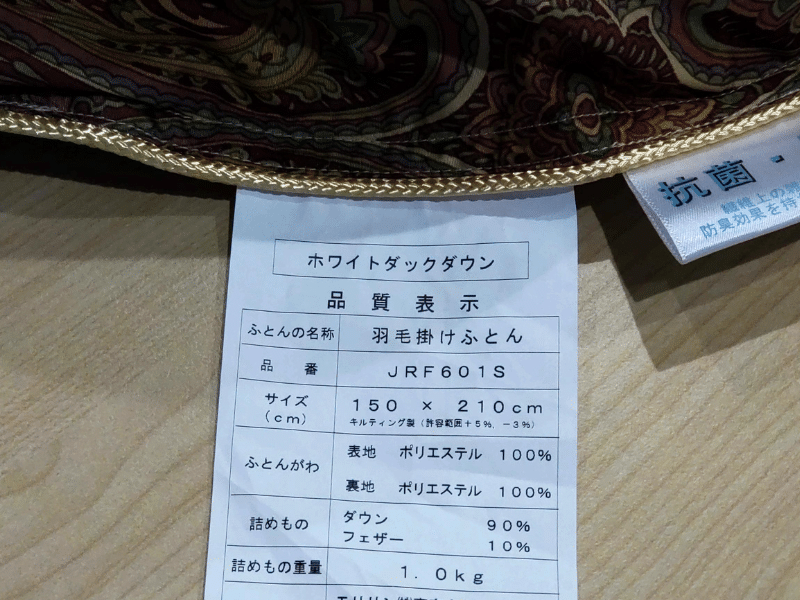 ホワイトダックダウン
品質表示
ふとんの名称 羽毛掛けふとん
品番 JRF601S
サイズ(cm) 150 × 210cm
キルティング製(許容範囲+5%, -3%)
ふとんがわ 表地 ポリエステル 100%
裏地 ポリエステル 100%
詰めもの ダウン 90%
フェザー 10%
詰めもの重量 1.0kg
抗菌・
繊維上の
防臭効果を持